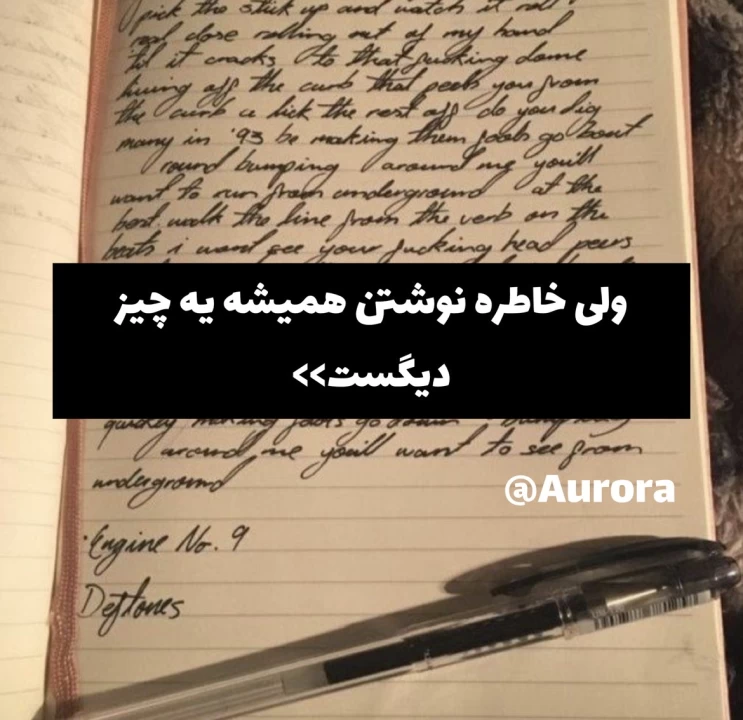 pick the stick up and watch it roll
real close rolling out of my hand
til it cracks to that fucking dome
hung off the curb that peels you from
the curb a lick the rest off do you dig
many in '93 be making them fools go bout
round bumping around me you'll
want to run from underground at the
best. walk the line from the verb on the
beats i want see your fucking head peers
ولی خاطره نوشتن همیشه یه چیز
دیگست>>
quickly making fools go down
around me you'll want to see from
underground
@Aurora
Engine No. 9
Deftones